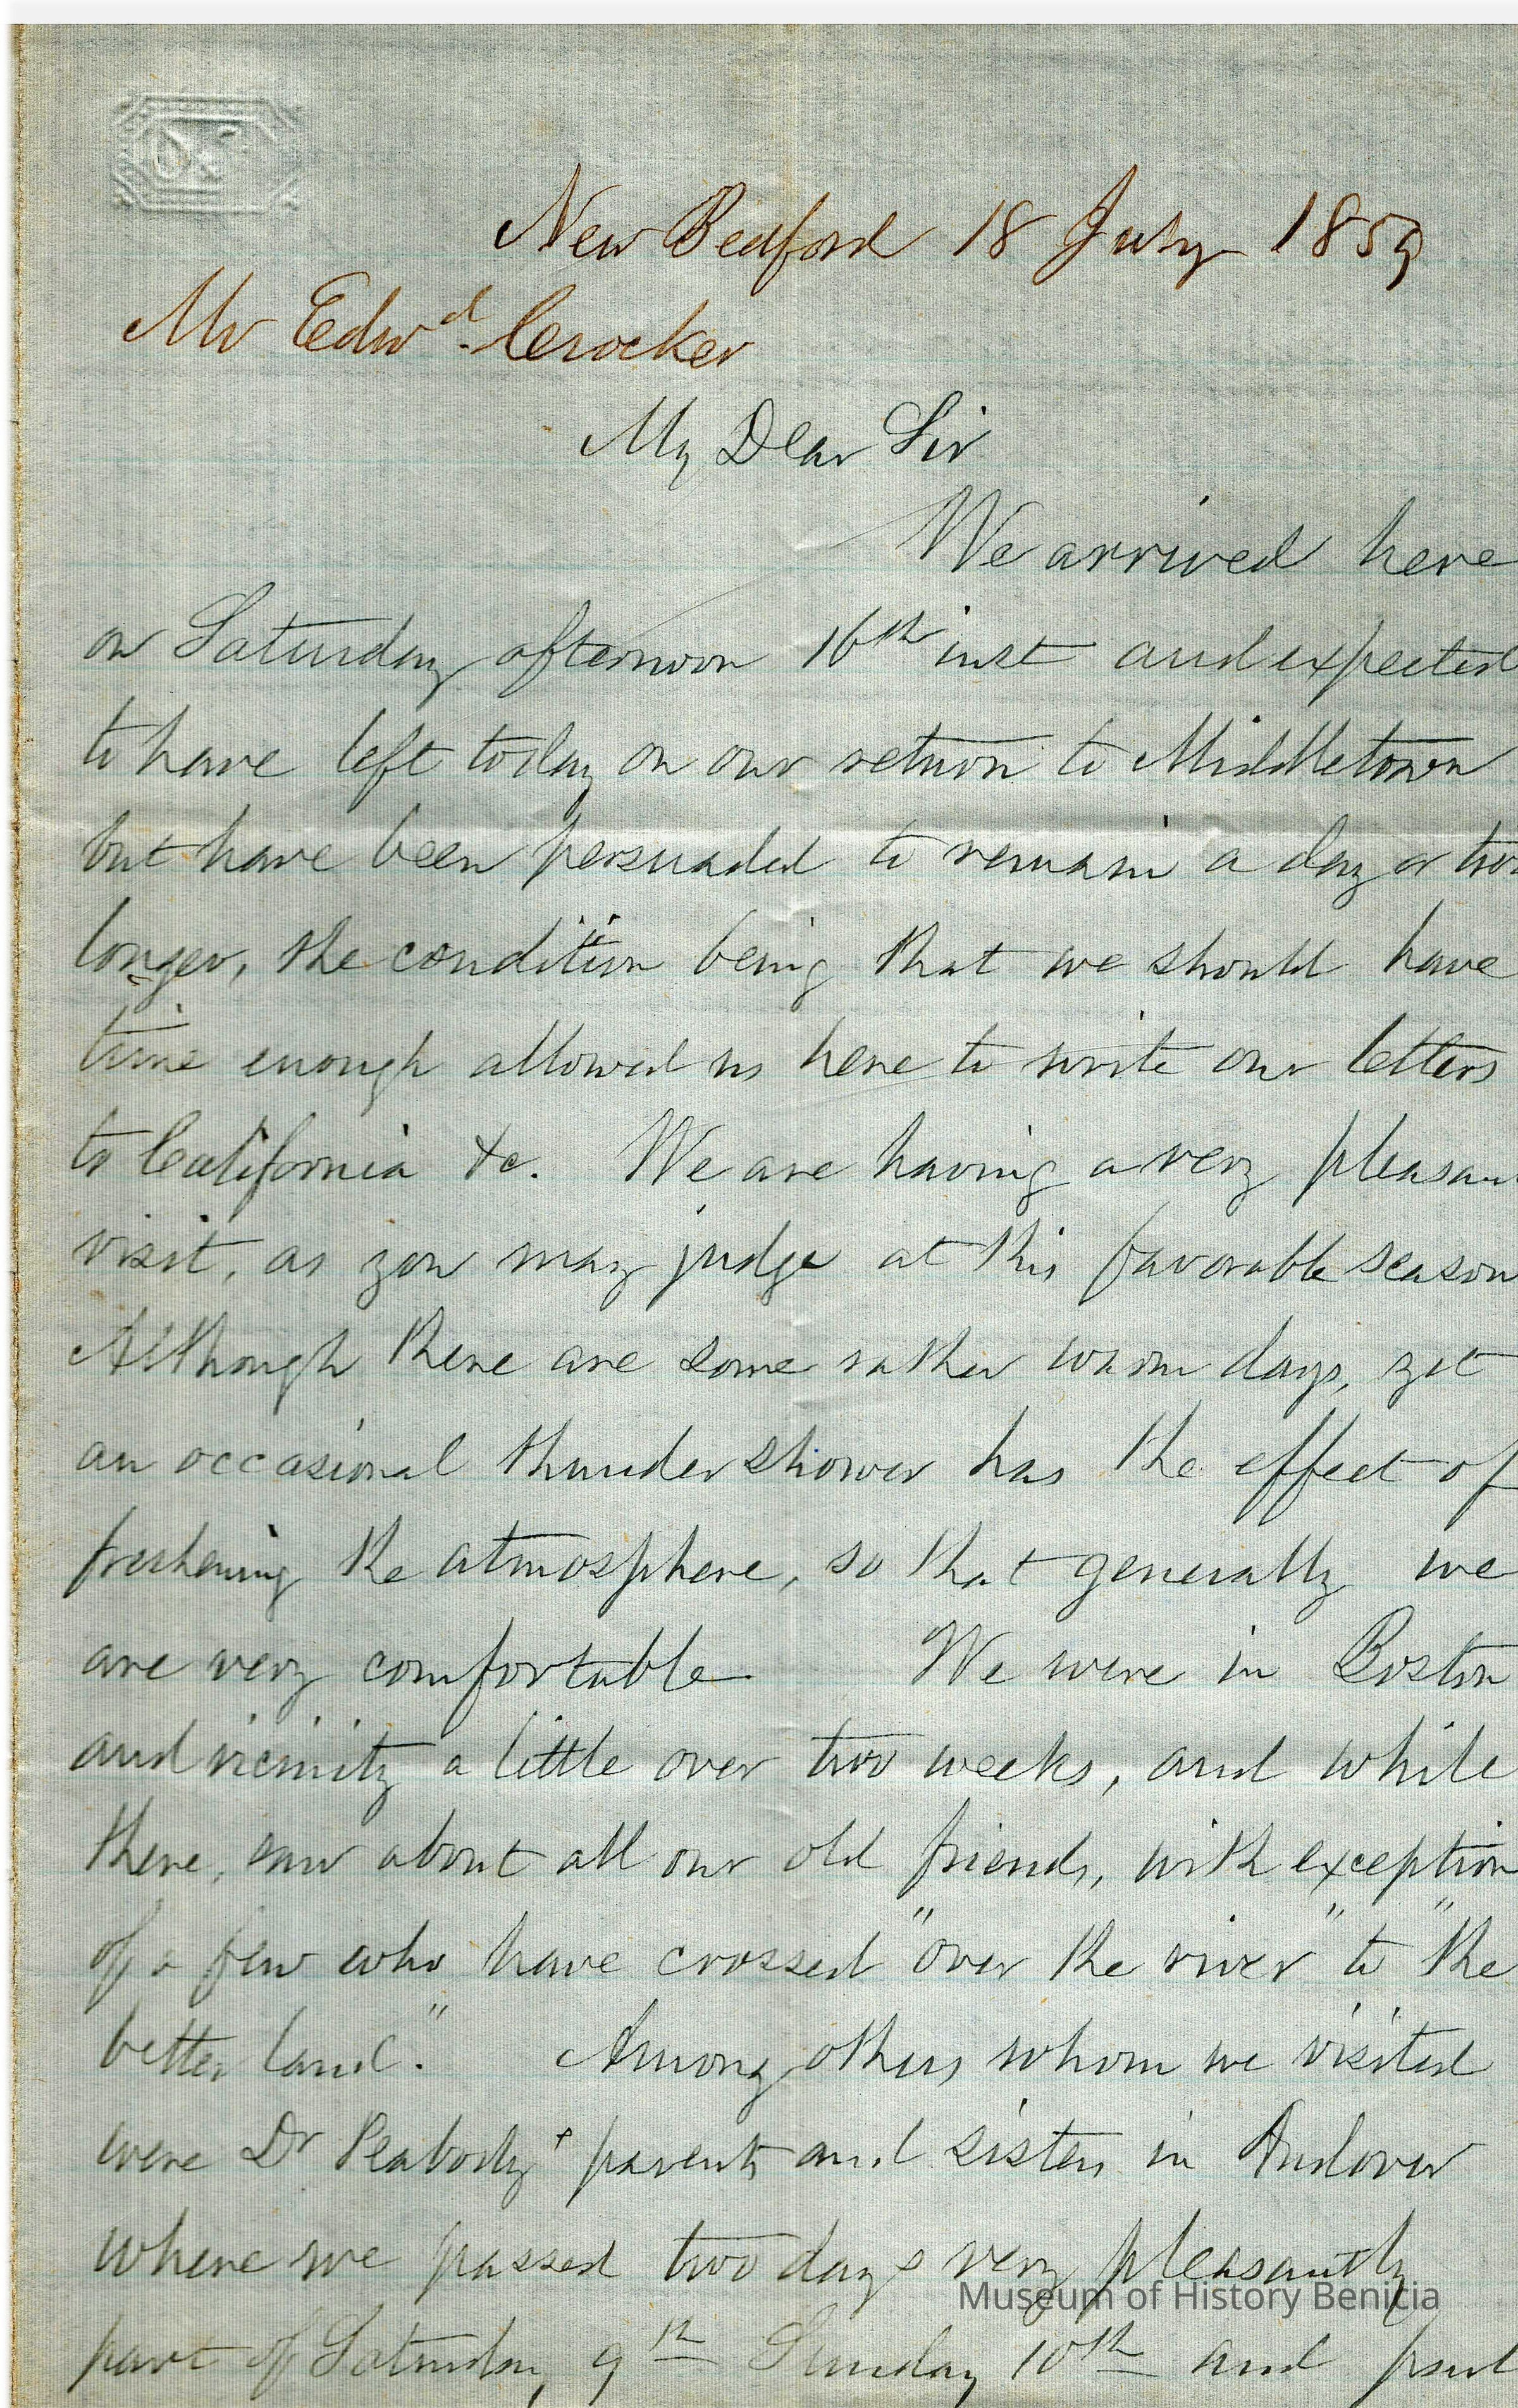 New Bedford 18 July 1859
Mr Edwd. Crocker
My Dear Sir
We arrived here
on Saturday afternoon 16th inst and expected
to have left today on our return to Middletown
but have been persuaded to remain a day or two
longer, the condition being that we should have
time enough allowed us here to write our letters
to California &c. We are having a very pleasant
visit, as you may judge at this favorable season
Although there are some rather warm days, yet
an occasional thunder shower has the effect of
freshening the atmosphere, so that generally we
are very comfortable We were in Boston
and vicinity a little over two weeks, and while
there, saw about all our old friends, with exception
of a few who have crossed "over the river" to "the
better land." Among others whom we visited
were Dr Peabody's parents and sisters in Andover
where we passed two days very pleasantly
part of Saturday, 9th Sunday 10th and part
Museum of History Benicia